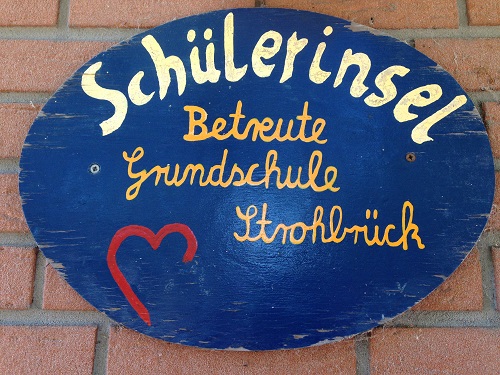 Schülerinsel
Betreute
Grundschule
Strohbrück